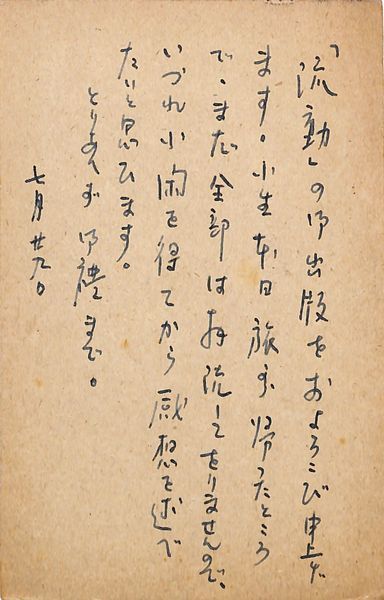 「流動」の御出版をおよろこび申上げ
ます。小生本日旅から帰つたところ
で、まだ全部は拝読してをりませんので、
いづれ小閑を得てから感想を述べ
たいと思ひます。
とりあへず御礼まで。
七月廿九日